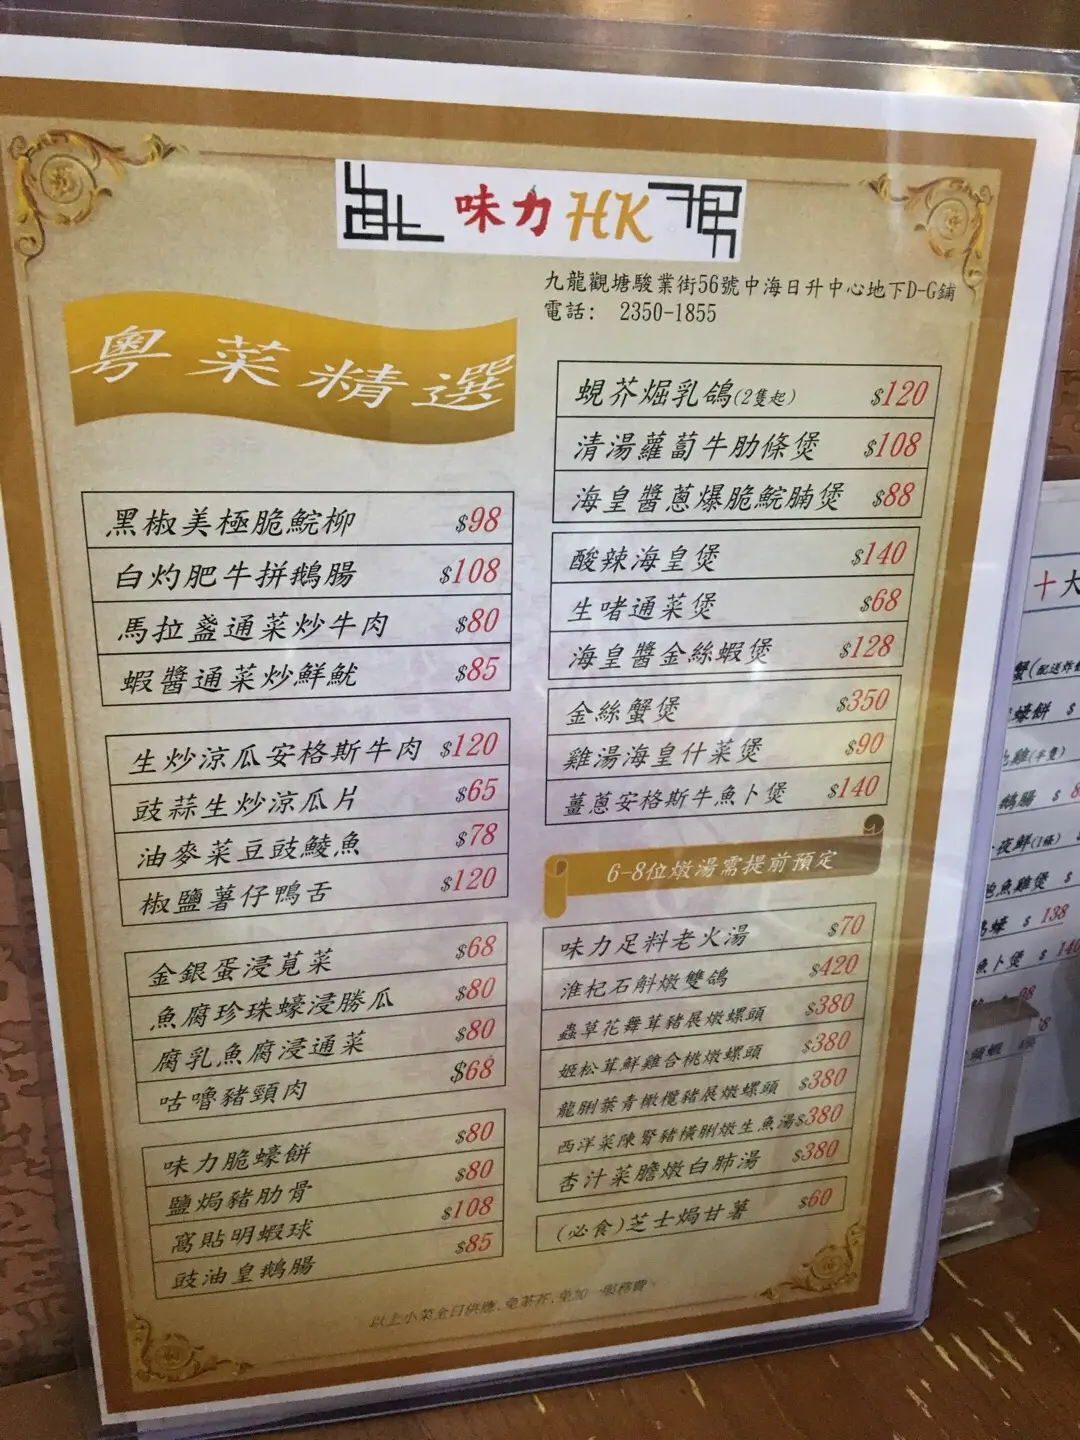 味力HK
九龍觀塘駿業街56號中海日升中心地下D-G鋪
電話： 2350-1855
粵菜精選
黑椒美極脆鯇柳 $98
白灼肥牛拼鵝腸 $108
馬拉盞通菜炒牛肉 $80
蝦醬通菜炒鮮魷 $85
生炒涼瓜安格斯牛肉 $120
豉蒜生炒涼瓜片 $65
油麥菜豆豉鯪魚 $78
椒鹽薯仔鴨舌 $120
金銀蛋浸莧菜 $68
魚腐珍珠蠔浸勝瓜 $80
腐乳魚腐浸通菜 $80
咕嚕豬頸肉 $68
味力脆蠔餅 $80
鹽焗豬肋骨 $80
窩貼明蝦球 $108
豉油皇鵝腸 $85
蜆芥焗乳鴿(2隻起) $120
清湯蘿蔔牛肋條煲 $108
海皇醬蔥爆脆鯇腩煲 $88
酸辣海皇煲 $140
生啫通菜煲 $68
海皇醬金絲蝦煲 $128
金絲蟹煲 $350
雞湯海皇什菜煲 $90
薑蔥安格斯牛魚卜煲 $140
6-8位燉湯需提前預定
味力足料老火湯 $70
淮杞石斛燉雙鴿 $420
蟲草花舞茸豬展燉螺頭 $380
姬松茸鮮雞合桃燉螺頭 $380
龍脷葉青橄欖豬展燉螺頭 $380
西洋菜陳腎豬橫脷燉生魚湯 $380
杏汁菜膽燉白肺湯 $380
(必食)芝士焗甘薯 $60
以上小菜全日供應，免茶芥，免加一服務費
十大
蟹(配送炸
蠔餅 $
雞(半隻)
鵝腸 $
夜鮮(1條)
鮑魚雞煲 $
蠔 $ 138
魚卜煲 $ 140
98